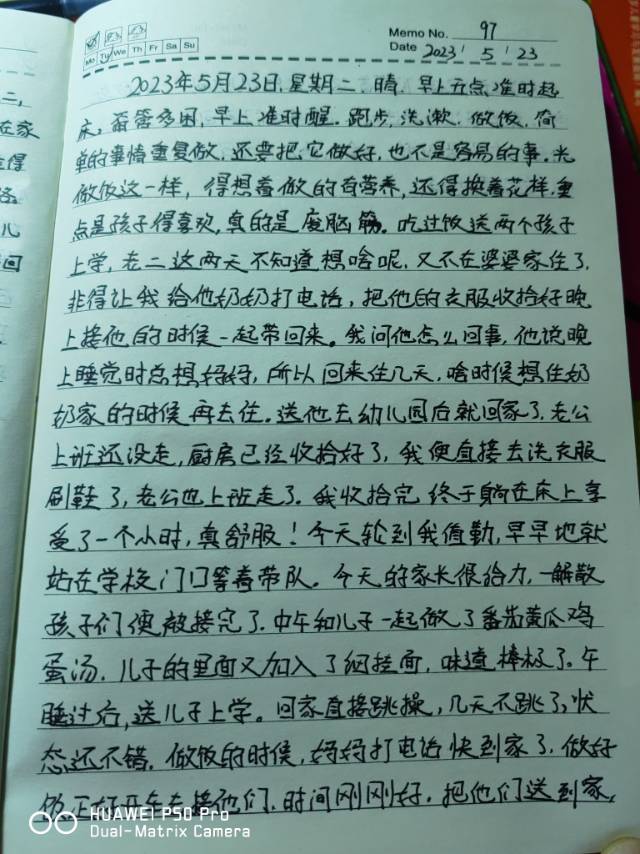 Memo No. 97
Mo Tu We Th Fr Sa Su
Date 2023 / 5 / 23
2023年5月23日,星期二,晴,早上五点准时起
床,甭管多困,早上准时醒.跑步,洗漱,做饭,简
单的事情重复做,还要把它做好,也不是容易的事.光
做饭这一样,得想着做的有营养,还得换着花样,重
点是孩子得喜欢,真的是废脑筋.吃过饭送两个孩子
上学,老二这两天不知道想啥呢,又不在婆婆家住了.
非得让我给他奶奶打电话,把他的衣服收拾好晚
上接他的时候一起带回来。我问他怎么回事,他说晚
上睡觉时总想妈妈,所以回来住几天,啥时候想住奶
奶家的时候再去住。送他去幼儿园后就回家了.老公
上班还没走,厨房已经收拾好了,我便直接去洗衣服
刷鞋了,老公也上班走了.我收拾完终于躺在床上享
受了一个小时,真舒服!今天轮到我值勤,早早地就
站在学校门口等着带队。今天的家长很给力,一解散
孩子们便被接完了.中午和儿子一起做了番茄黄瓜鸡
蛋汤.儿子的里面又加入了细挂面,味道棒极了.午
睡过后,送儿子上学。回家直接跳操,几天不跳了,状
态还不错.做饭的时候,妈妈打电话快到家了.做好
饭,正好开车去接他们.时间刚刚好.把他们送到家,
二,
在家
得
路
儿
回
HUAWEI P50 Pro
Dual-Matrix Camera